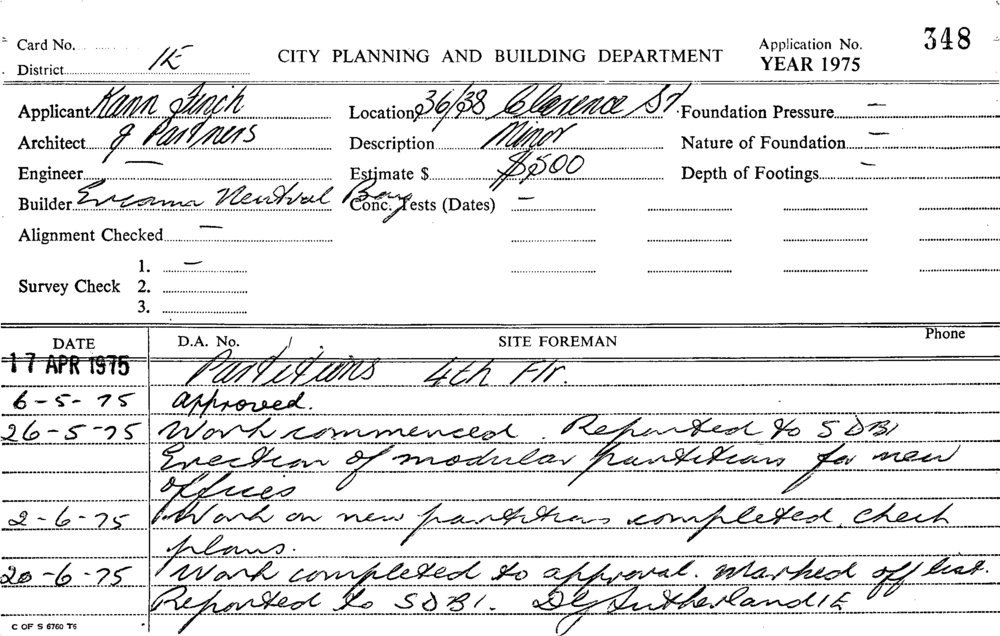 Card No. CITY PLANNING AND BUILDING DEPARTMENT Application No. 348
District 1E YEAR 1975
Applicant Kann Finch Location 36/38 Clarence St. Foundation Pressure —
Architect & Partners Description Minor Nature of Foundation —
Engineer — Estimate $ $500 Depth of Footings —
Builder Neutral Bay Conc. Tests (Dates) —
Alignment Checked —
1. —
Survey Check 2.
3.
DATE D.A. No. SITE FOREMAN Phone
17 APR 1975 Partitions 4th Flr.
6-5-75 approved.
26-5-75 Work commenced. Reported to SDBI
Erection of modular partitions for new
offices
2-6-75 Work on new partitions completed. check
plans.
20-6-75 Work completed to approval. Marked off list.
Reported to SDBI. DG Sutherland 1E
C OF S 6760 T6